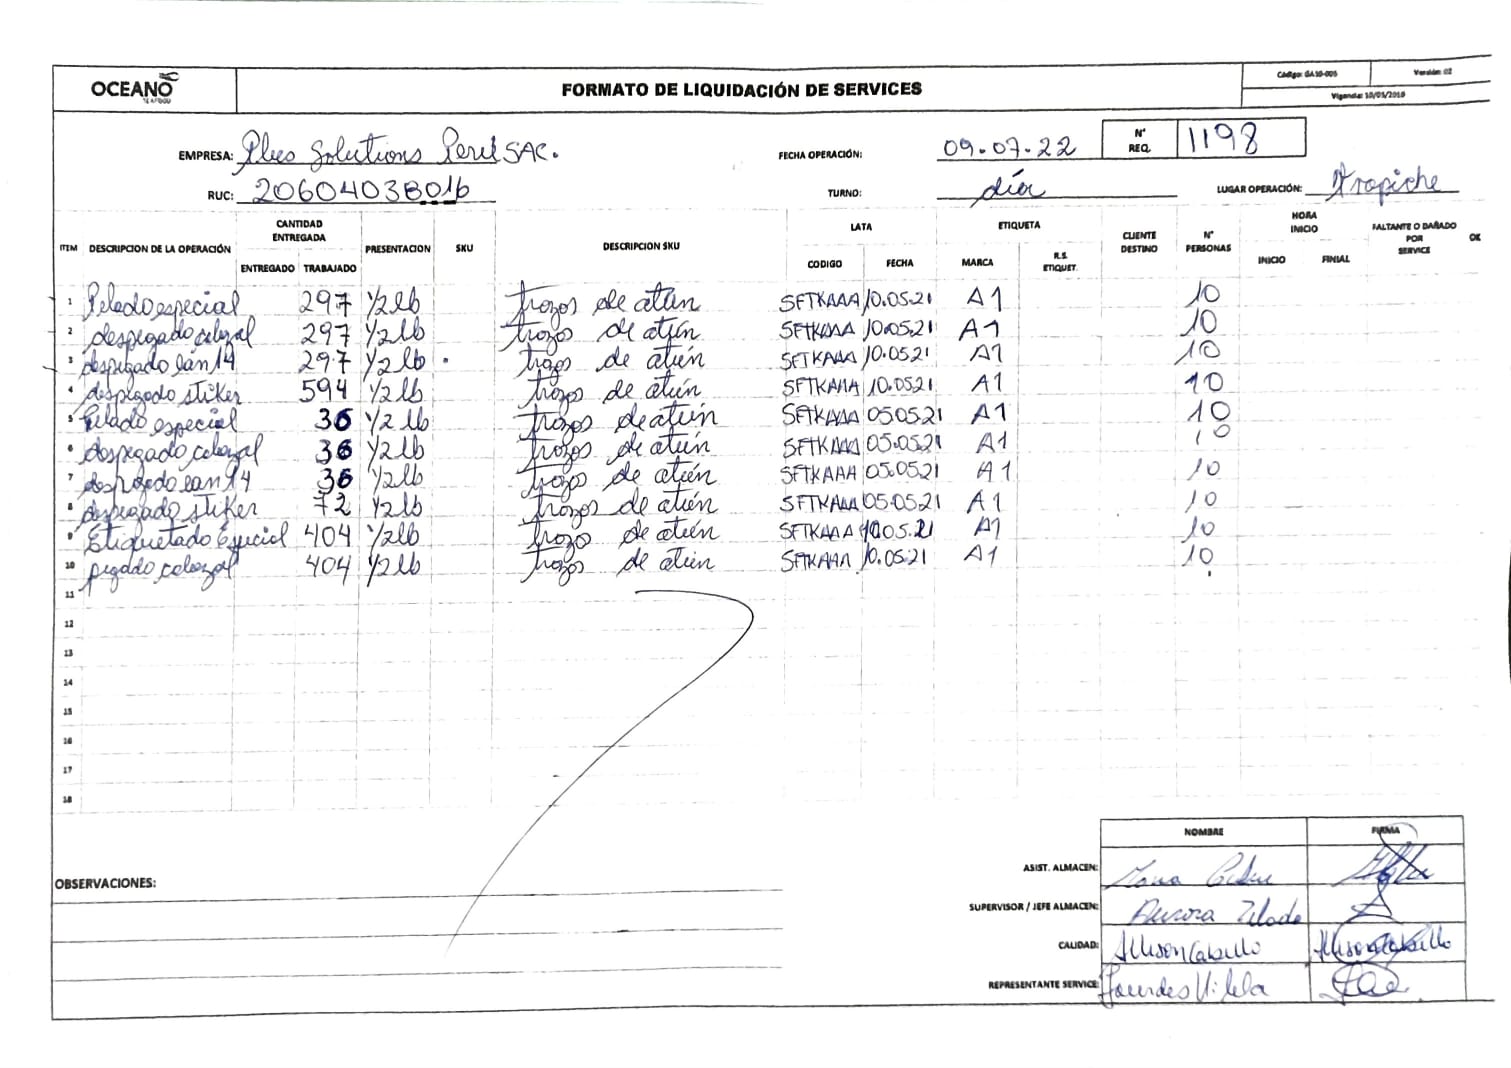 OCEANO
SEAFOOD
FORMATO DE LIQUIDACIÓN DE SERVICES
Código: GA10-005
Versión: 02
Vigencia: 10/05/2019
EMPRESA: Plus Solutions Perú SAC.
FECHA OPERACIÓN: 09.07.22
N° REQ. 1198
RUC: 20604038016
TURNO: día
LUGAR OPERACIÓN: Trapiche
ITEM DESCRIPCION DE LA OPERACIÓN CANTIDAD ENTREGADA PRESENTACION SKU DESCRIPCION SKU LATA ETIQUETA CLIENTE DESTINO N° PERSONAS HORA INICIO FALTANTE O DAÑADO POR SERVICE OK
ENTREGADO TRABAJADO CODIGO FECHA MARCA R.S. ETIQUET. INICIO FINIAL
1 Pelado especial 297 1/2 lb trozos de atún SFTKAAA 10.05.21 A1 10
2 despegado colozal 297 1/2 lb trozos de atún SFTKAAA 10.05.21 A1 10
3 despegado ean14 297 1/2 lb trozos de atún SFTKAAA 10.05.21 A1 10
4 despegado stiker 594 1/2 lb trozos de atún SFTKAAA 10.05.21 A1 10
5 Pelado especial 36 1/2 lb trozos de atún SFTKAAA 05.05.21 A1 10
6 despegado colozal 36 1/2 lb trozos de atún SFTKAAA 05.05.21 A1 10
7 despegado ean14 36 1/2 lb trozos de atún SFTKAAA 05.05.21 A1 10
8 despegado stiker 72 1/2 lb trozos de atún SFTKAAA 05.05.21 A1 10
9 Etiquetado Especial 404 1/2 lb trozo de atún SFTKAAA 10.05.21 A1 10
10 pegado colozal 404 1/2 lb trozos de atún SFTKAAA 10.05.21 A1 10
11
12
13
14
15
16
17
18
NOMBRE FIRMA
OBSERVACIONES:
ASIST. ALMACEN:
SUPERVISOR / JEFE ALMACEN: Aurora
CALIDAD: Allison Cabello
REPRESENTANTE SERVICE: Lourdes Vilela